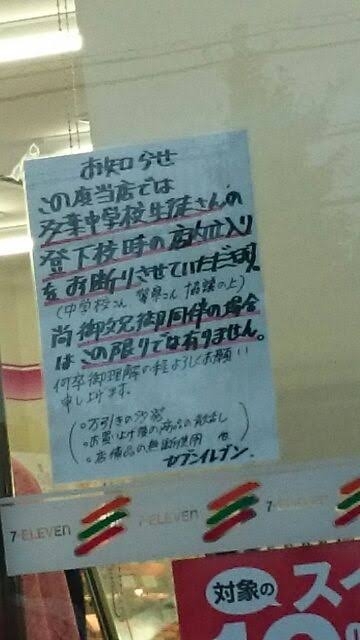 お知らせ
この度当店では
多葉中学校生徒さんの
登下校時の店内立入り
をお断りさせていただきます。
(中学校さん 警察さん 協議の上)
尚御父兄御同伴の場合
はこの限りでは有りません。
何卒御理解の程よろしくお願い
申し上げます。
。万引きの
。お買い上げ後の商品の散らし
。店備品の無断使用 他
セブンイレブン
7-ELEVEn 7-ELEVEn 7-ELEVEn
対象の
スイ